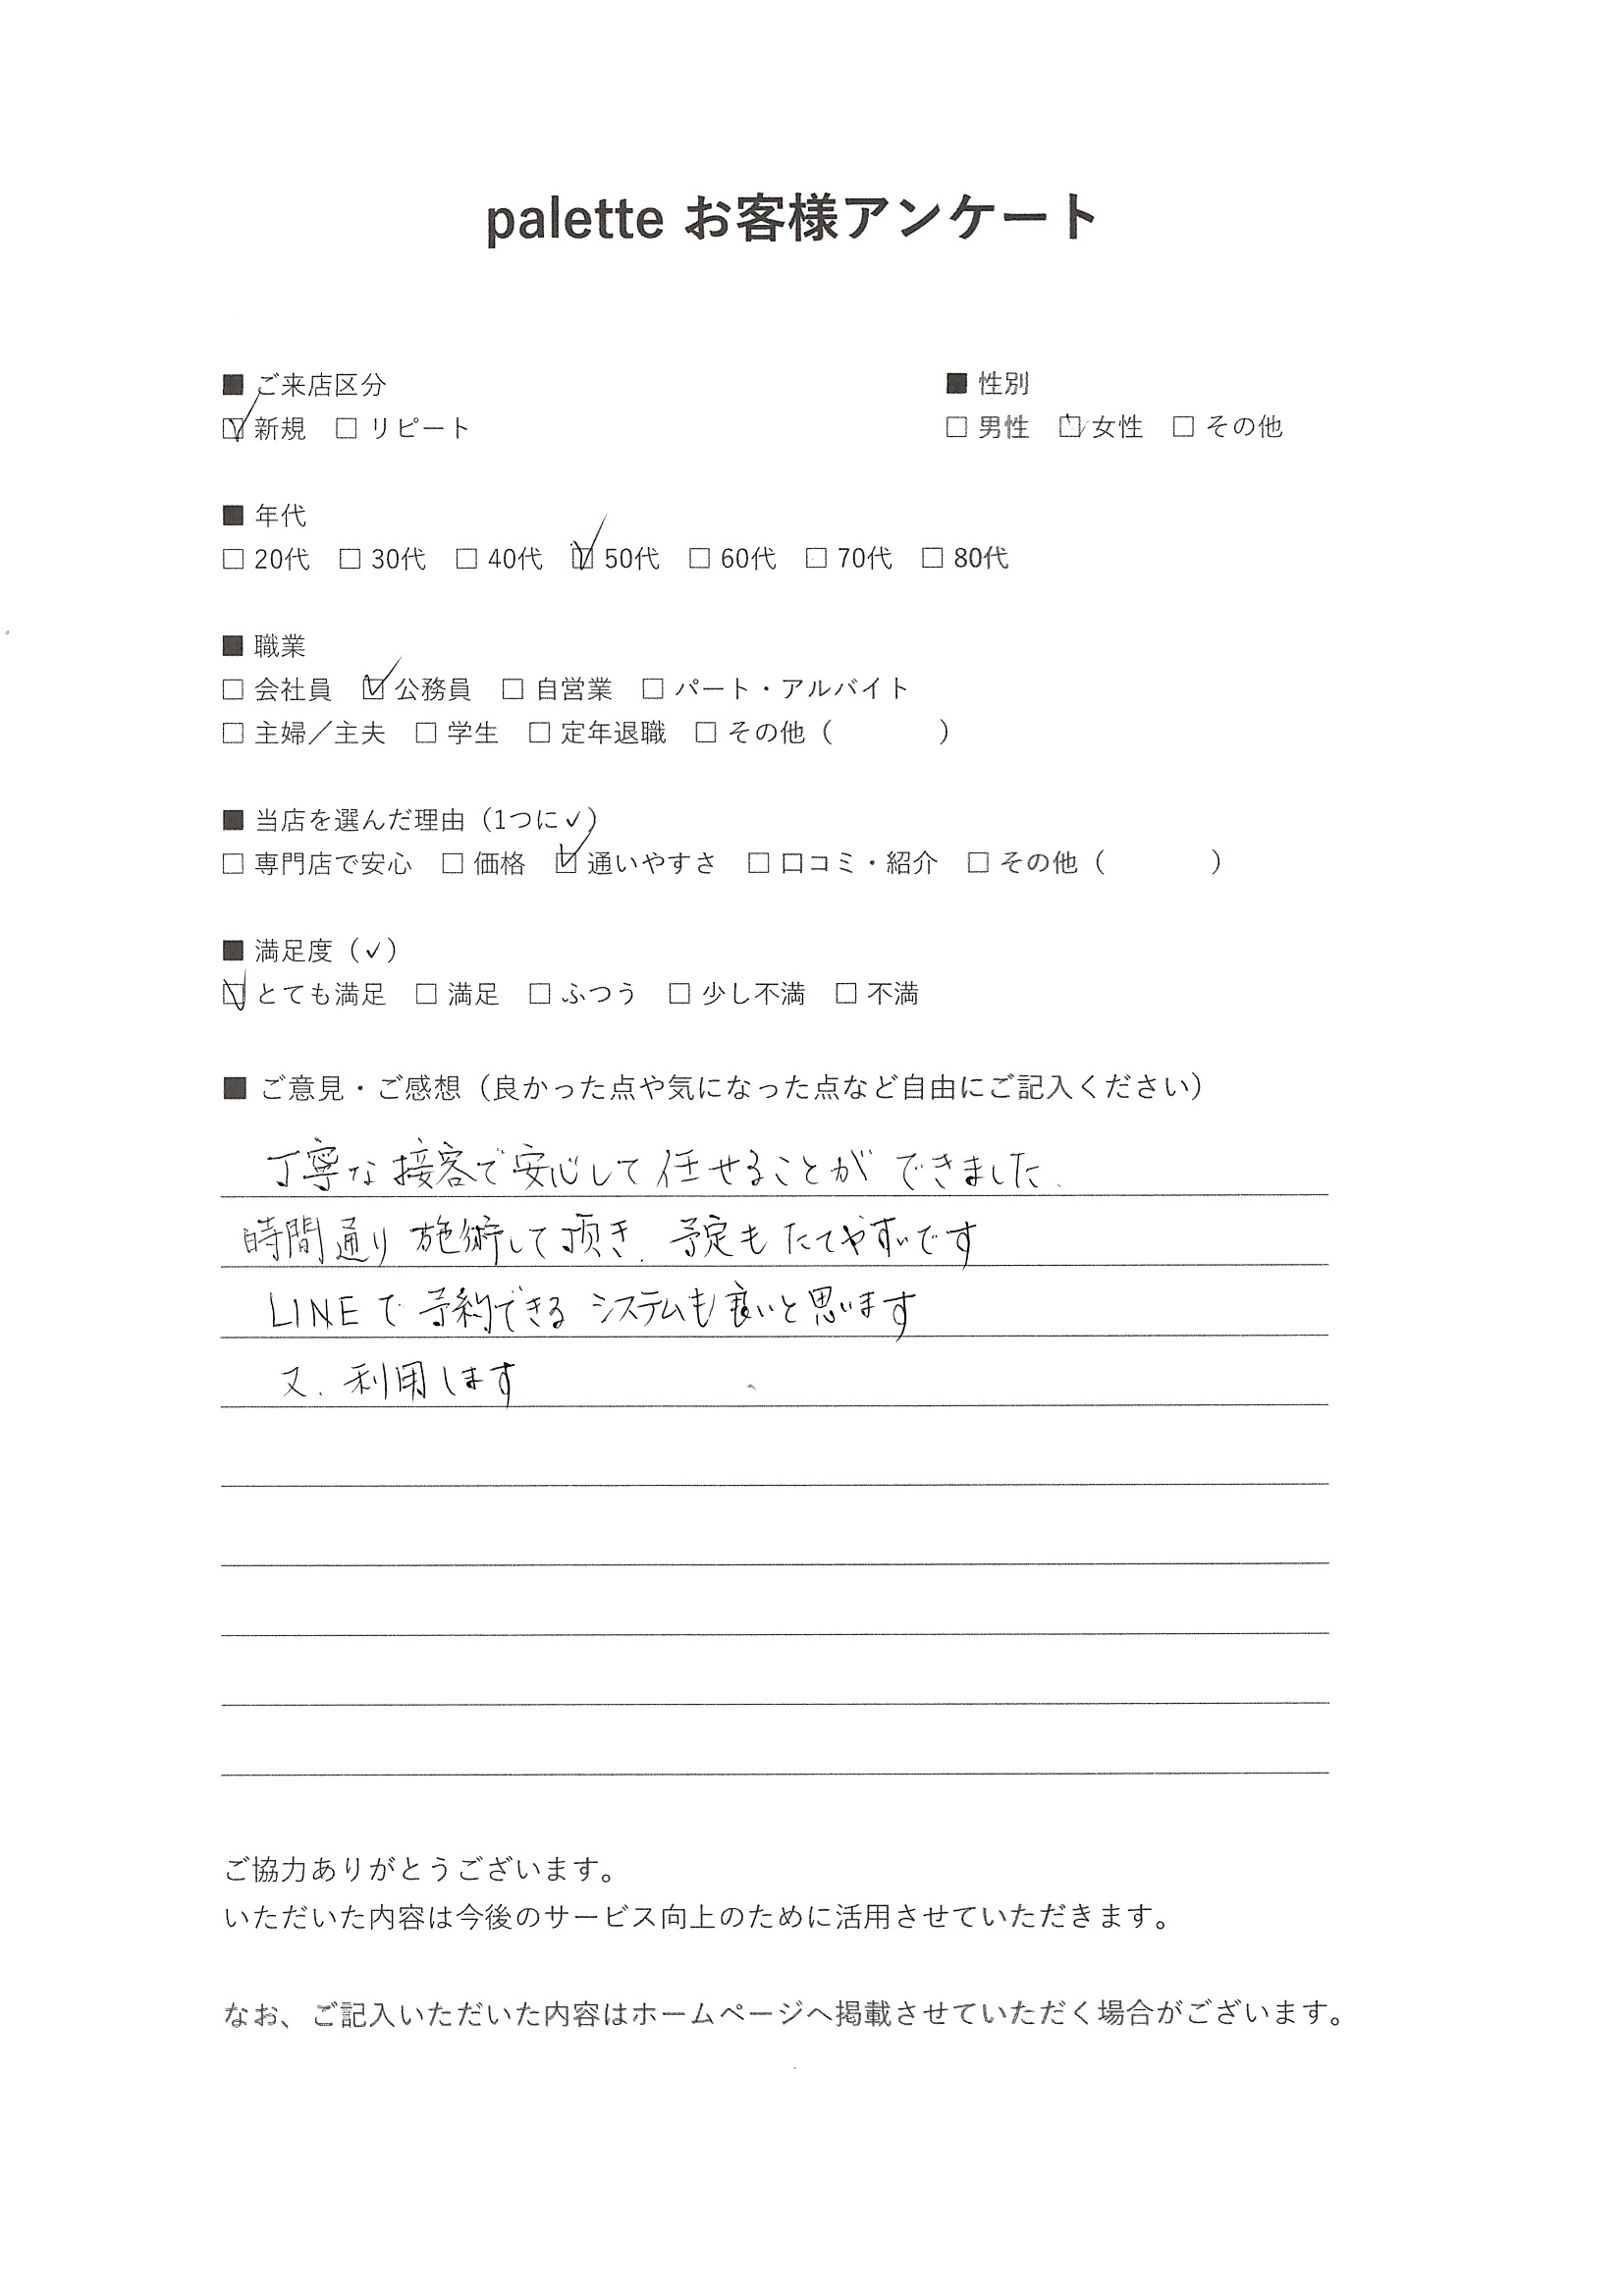 palette お客様アンケート
■ ご来店区分
☑ 新規 □ リピート
■ 性別
□ 男性 ☑ 女性 □ その他
■ 年代
□ 20代 □ 30代 □ 40代 ☑ 50代 □ 60代 □ 70代 □ 80代
■ 職業
□ 会社員 ☑ 公務員 □ 自営業 □ パート・アルバイト
□ 主婦／主夫 □ 学生 □ 定年退職 □ その他（　　　　）
■ 当店を選んだ理由（1つに✓）
□ 専門店で安心 □ 価格 ☑ 通いやすさ □ 口コミ・紹介 □ その他（　　　　）
■ 満足度（✓）
☑ とても満足 □ 満足 □ ふつう □ 少し不満 □ 不満
■ ご意見・ご感想（良かった点や気になった点など自由にご記入ください）
丁寧な接客で安心して任せることができました.
時間通り施術して頂き. 予定もたてやすいです
LINEで予約できるシステムも良いと思います
又. 利用します
ご協力ありがとうございます。
いただいた内容は今後のサービス向上のために活用させていただきます。
なお、ご記入いただいた内容はホームページへ掲載させていただく場合がございます。